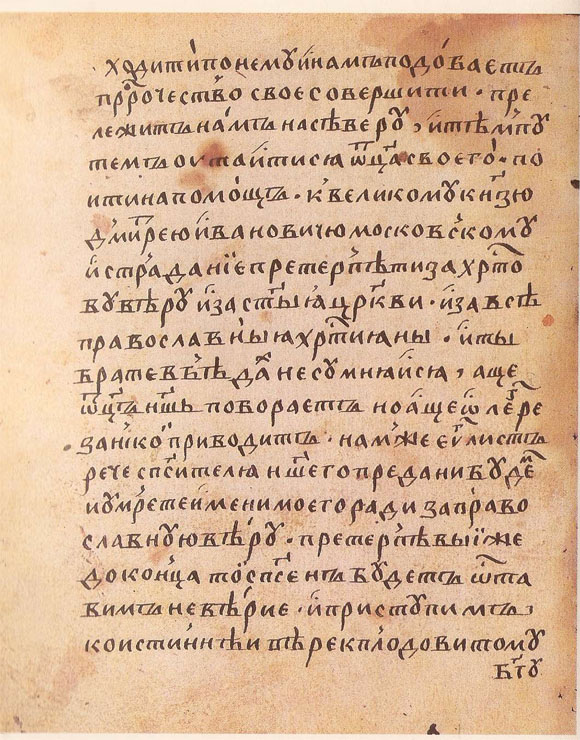 ходитипонемуинамъподобаетъ
пррочествосвоесовершити · пре
лежитънамънасѣверѹ, итѣмпу
темъоутаитисяѿцасвоего · по
итинапомощъ · квеликомукнѕю
дмитреюивановичюмосковскому
истраданїепретерпѣтизахрⷭ҇то
вувѣруизаст҃ыꙗцр҃кви · изавсѣ
православныꙗхрⷭ҇тиꙗны · иты
братевѣтⷣанесумнꙗисꙗ, аще
ѿцънш҃ьпобораетъноащеѡлегре
занскоиприводитъ · намжееѵⷢ҇листъ
речеспⷭ҇ителꙗнш҃егопреданибудеⷮ
иумретеименимоегорадизаправо
славнуювѣру · претерпѣвыиже
доконцатоиспⷭ҇енъбудетъѿта
вимъневѣрие · иприступимъ
коистиннѣивѣрекплодовитому
бг҃у